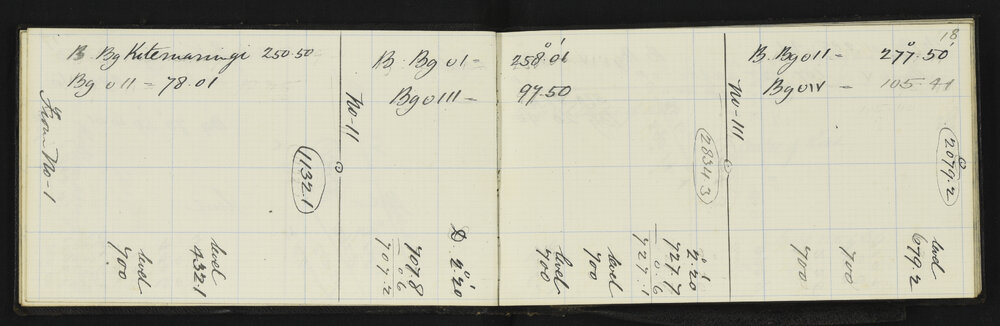 18
B. Bg Kitemaringi 250.50
Bg O II = 78.01
From No-1
1132.1
level
432.1
level
700
No-II
B. Bg O I = 258° 01'
Bg O III = 97.50
D. 2° 20'
707.8
0 6
707.2
level
700
level
700
2° 20'
727.7
0.6
727.1
2834.3
No-III
B. Bg O II = 277° 50'
Bg O IV = 105.41
2079.2
level
679.2
700
700